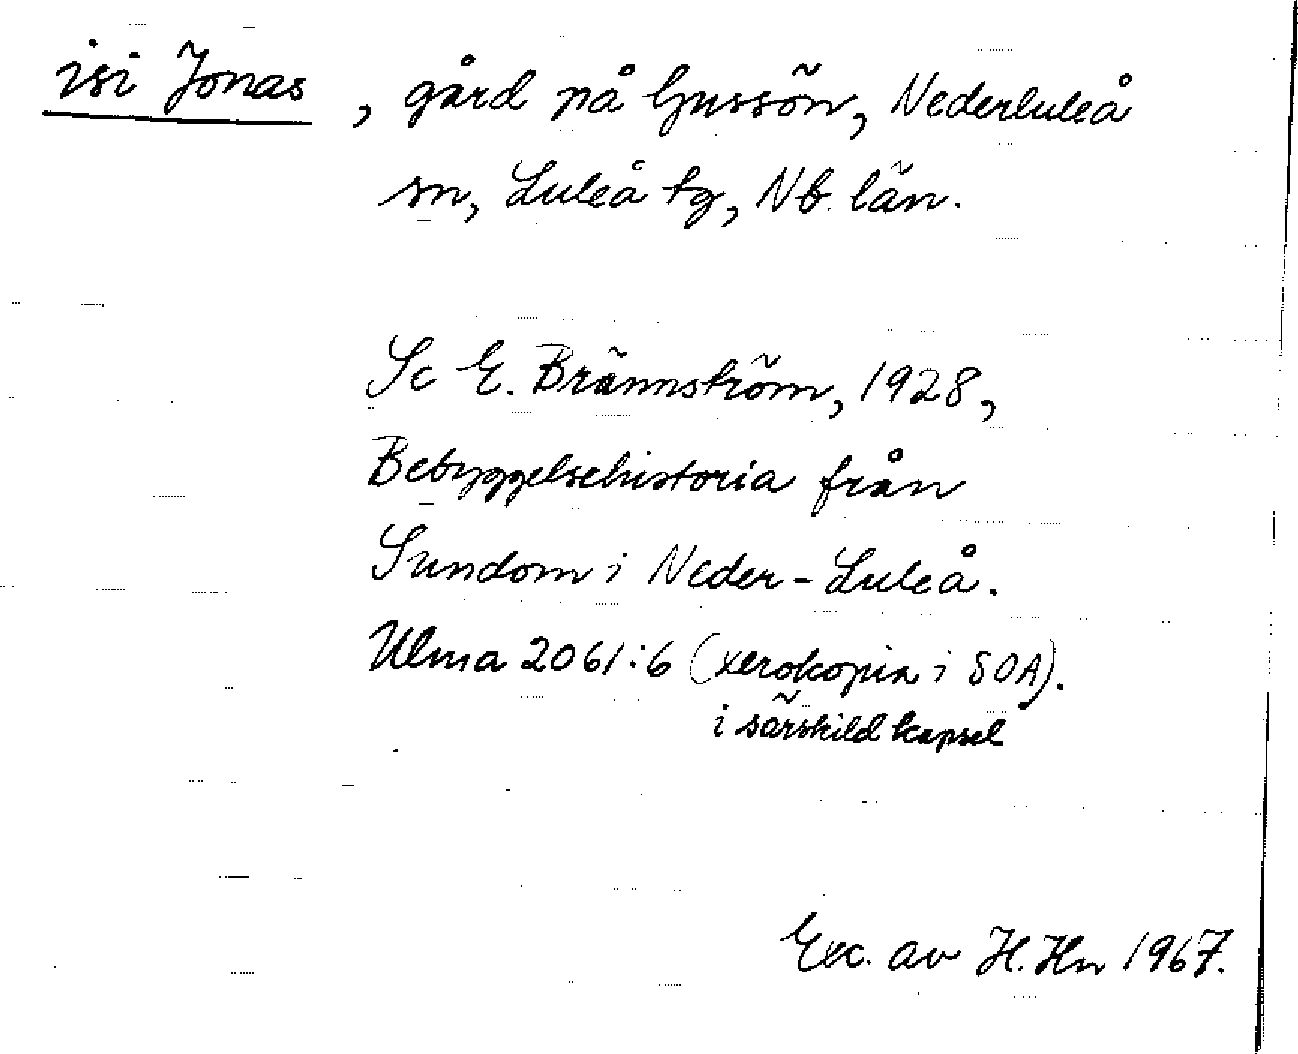 isi Jonas, gård på Hjussön, Nederluleå
sn, Luleå tg, Nb. län.
Sc E. Brännström, 1928,
Bebyggelsehistoria från
Sundom i Neder-Luleå.
Ulma 2061:6 (xerokopia i SOA).
i särskild kapsel
Exc. av H. Hn 1967.